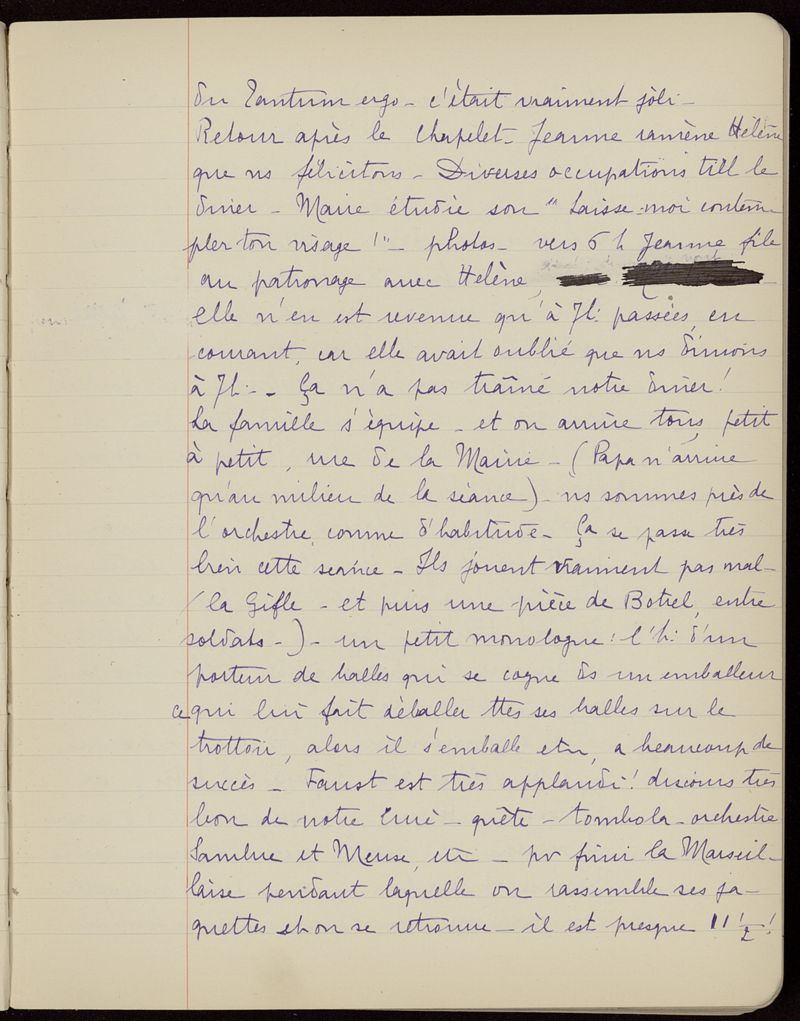 du Tantum ergo – c'était vraiment joli –
Retour après le chapelet – Jeanne ramène Hélène
que ns félicitons – Diverses occupations till le
dîner – Marie étudie son "Laisse-moi contem-
pler ton visage !" – photos – vers 6 h Jeanne file
au patronage avec Hélène,
elle n'en est revenue qu'à 7h. passées, en
courant, car elle avait oublié que ns dînions
à 7h. – Ça n'a pas traîné notre dîner !
La famille s'équipe – et on arrive tous, petit
à petit, rue de la Mairie – (Papa n'arrive
qu'au milieu de la séance) – ns sommes près de
l'orchestre, comme d'habitude – Ça se passe très
bien cette séance – Ils jouent vraiment pas mal –
(la Gifle – et puis une pièce de Botrel, entre
soldats –) – un petit monologue : l'h. d'un
porteur de balles qui se cogne ds un emballeur
ce qui lui fait déballer ttes ses balles sur le
trottoir, alors il s'emballe etc, a beaucoup de
succès – Faust est très applaudi ! discours très
bon de notre Curé – quête – tombola – orchestre
Sambre et Meuse, etc – pr finir la Marseil-
laise pendant laquelle on rassemble ses ja-
quettes et on se retrouve – il est presque 11 1/2 !